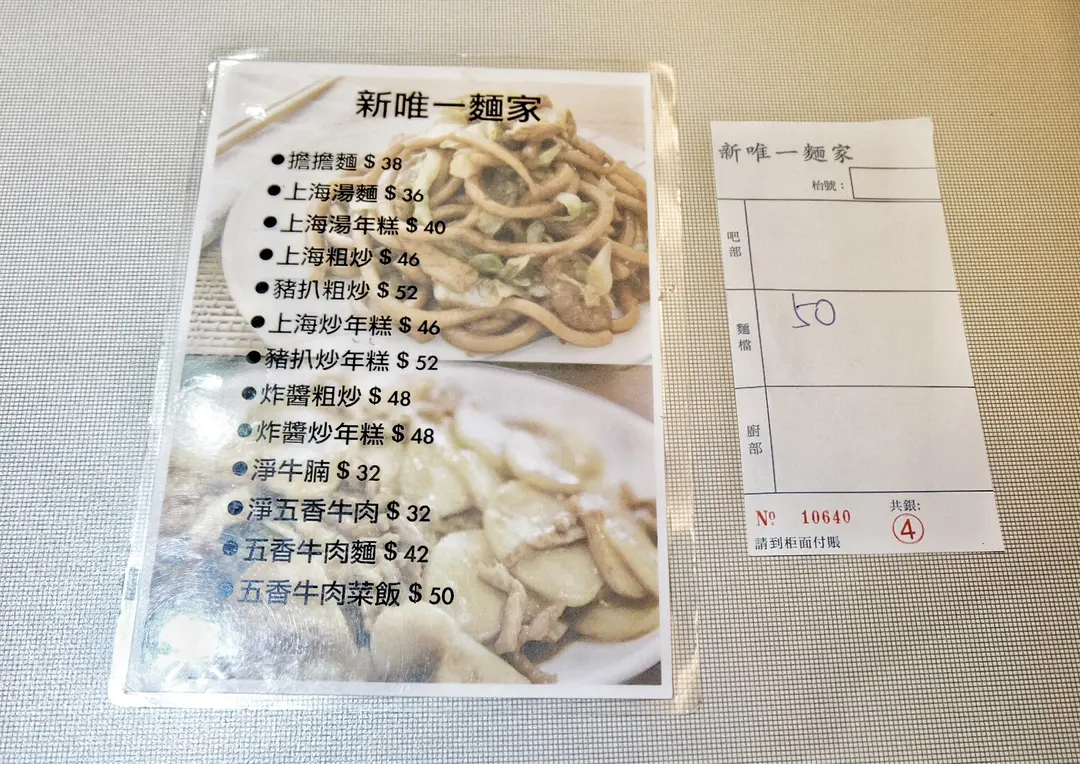 新唯一麵家
●擔擔麵 $ 38
●上海湯麵 $ 36
●上海湯年糕 $ 40
●上海粗炒 $ 46
●豬扒粗炒 $ 52
●上海炒年糕 $ 46
●豬扒炒年糕 $ 52
●炸醬粗炒 $ 48
●炸醬炒年糕 $ 48
●淨牛腩 $ 32
●淨五香牛肉 $ 32
●五香牛肉麵 $ 42
●五香牛肉菜飯 $ 50
新唯一麵家
枱號：
吧部
麵檔
50
廚部
共銀:
Nº 10640
④
請到柜面付賬